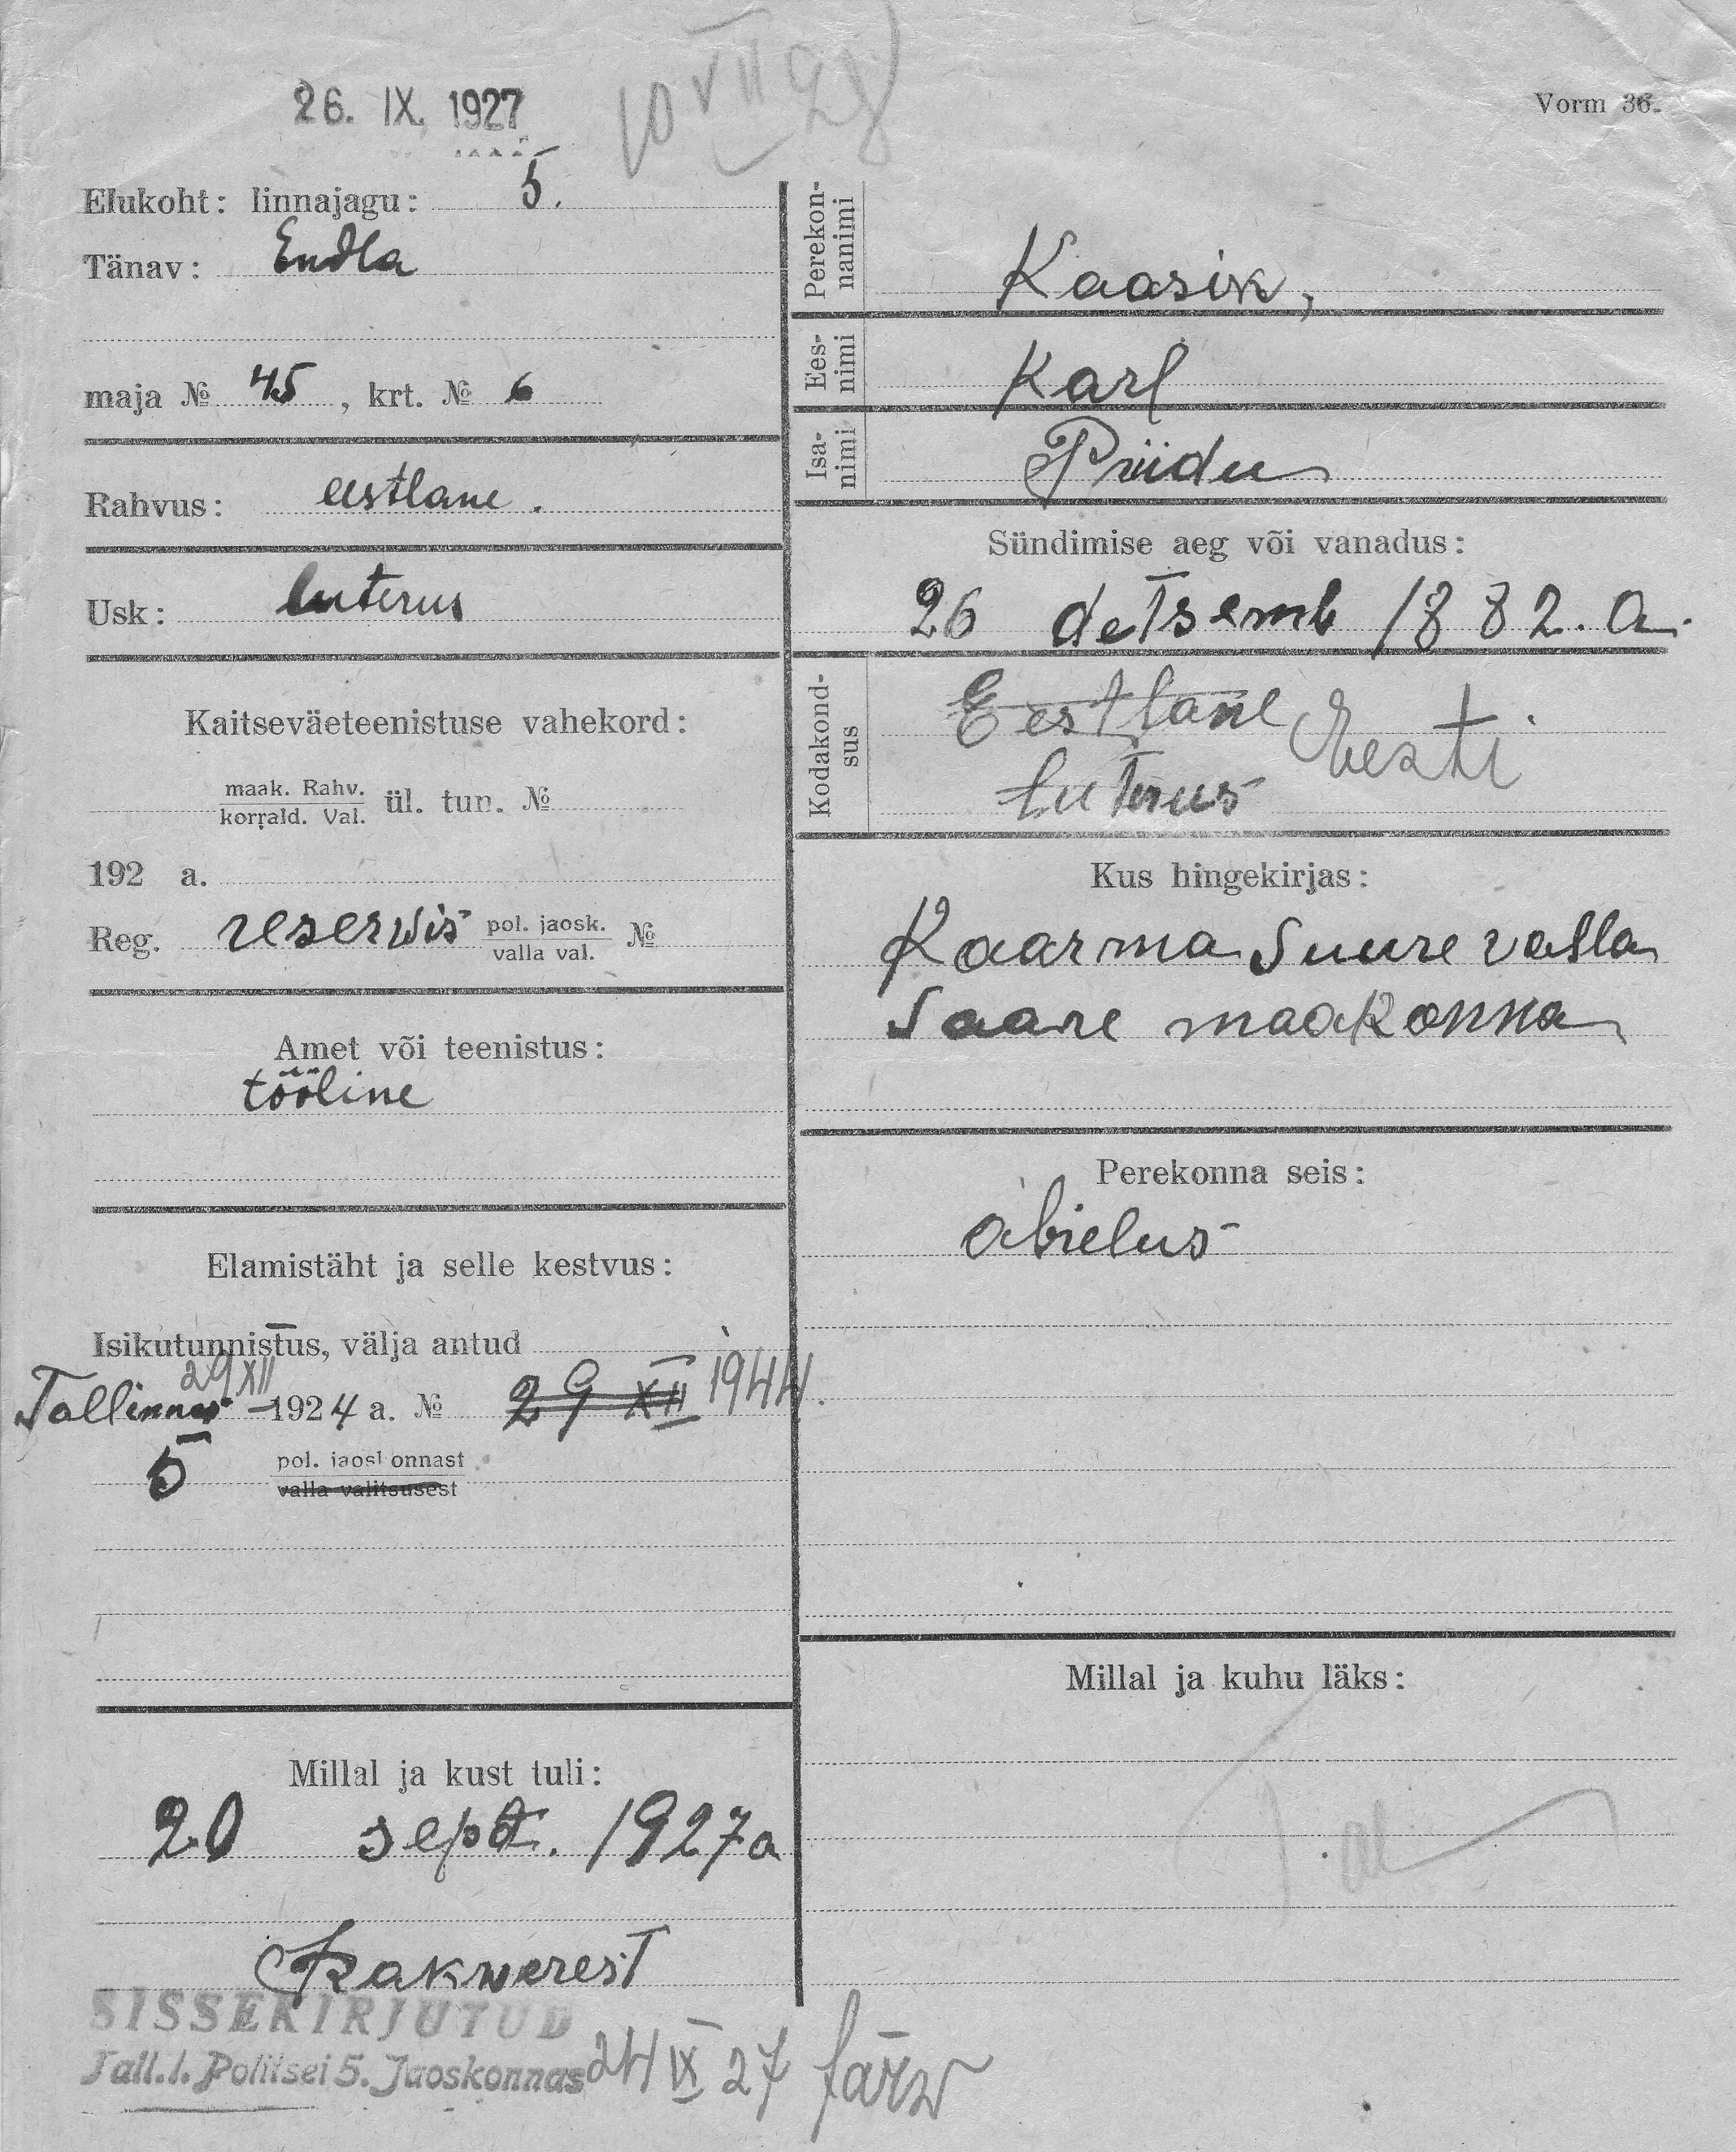 26. IX. 1927
10 VII 28
Vorm 36.
Elukoht: linnajagu: 5.
Tänav: Endla
maja № 45, krt. № 6
Rahvus: eestlane.
Usk: luterus
Kaitseväeteenistuse vahekord:
maak. Rahv.
korrald. Val. ül. tun. №
192 a.
Reg. reserwis pol. jaosk.
valla val. №
Amet või teenistus:
tööline
Elamistäht ja selle kestvus:
Isikutunnistus, välja antud
29 XII
Tallinnas 1924 a. № 29 XII 1944.
5 pol. jaosk onnast
valla valitsusest
Millal ja kust tuli:
20 sept. 1927 a
Rakwerest
SISSEKIRJUTUD
Tall.l. Politsei 5. Jaoskonnas 24 IX 27
Perekon-
nanimi
Kaasik,
Ees-
nimi
Karl
Isa-
nimi
Priidu
Sündimise aeg või vanadus:
26 detsemb 1882. a.
Kodakond-
sus
Eestlane Eesti
luterus
Kus hingekirjas:
Kaarma Suure valla
Saare maakonna
Perekonna seis:
abielus
Millal ja kuhu läks: